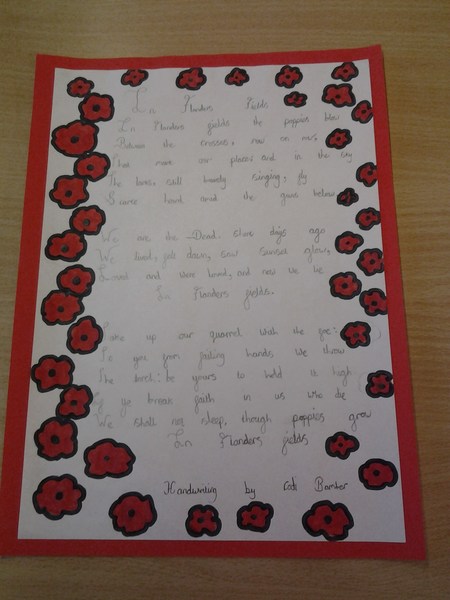 In Flanders Fields
In Flanders fields the poppies blow
Between the crosses, row on row,
That mark our place: and in the sky
The larks, still bravely singing, fly
Scarce heard amid the guns below
We are the Dead. Short days ago
We lived, felt dawn, saw sunset glow,
Loved and were loved, and now we lie
In Flanders fields.
Take up our quarrel with the foe:
To you from failing hands we throw
The torch: be yours to hold it high
If ye break faith in us who die
We shall not sleep, though poppies grow
In Flanders fields
Handwriting by Bamber